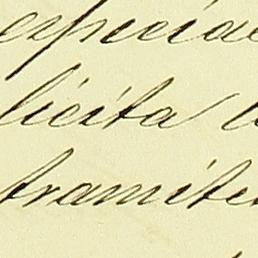 especial
licita
tramite